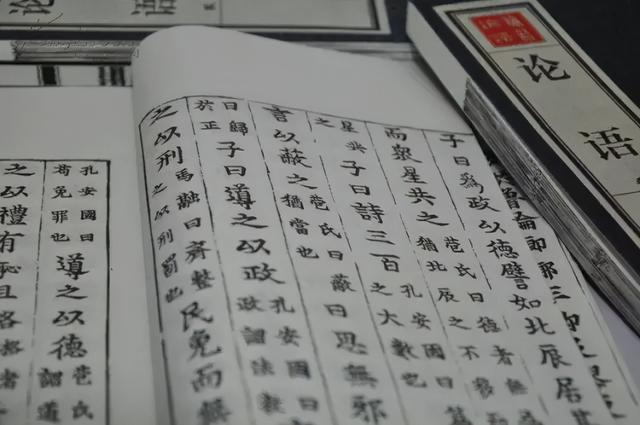 论语
论语
子曰爲政以德譬如北辰居其
而衆星共之苞氏曰德者無
猶北辰之不移
星共
之
子曰詩三百孔安國曰
之大數也
言以蔽之苞氏曰蔽
猶當也
曰思無邪
曰歸
於正
子曰導之以政孔安國曰
政謂法教
之以刑馬融曰齊整
之以刑罰也
民免而無
孔安國曰
苟免罪也
導之以德苞氏
謂道
之以禮有恥且格格者